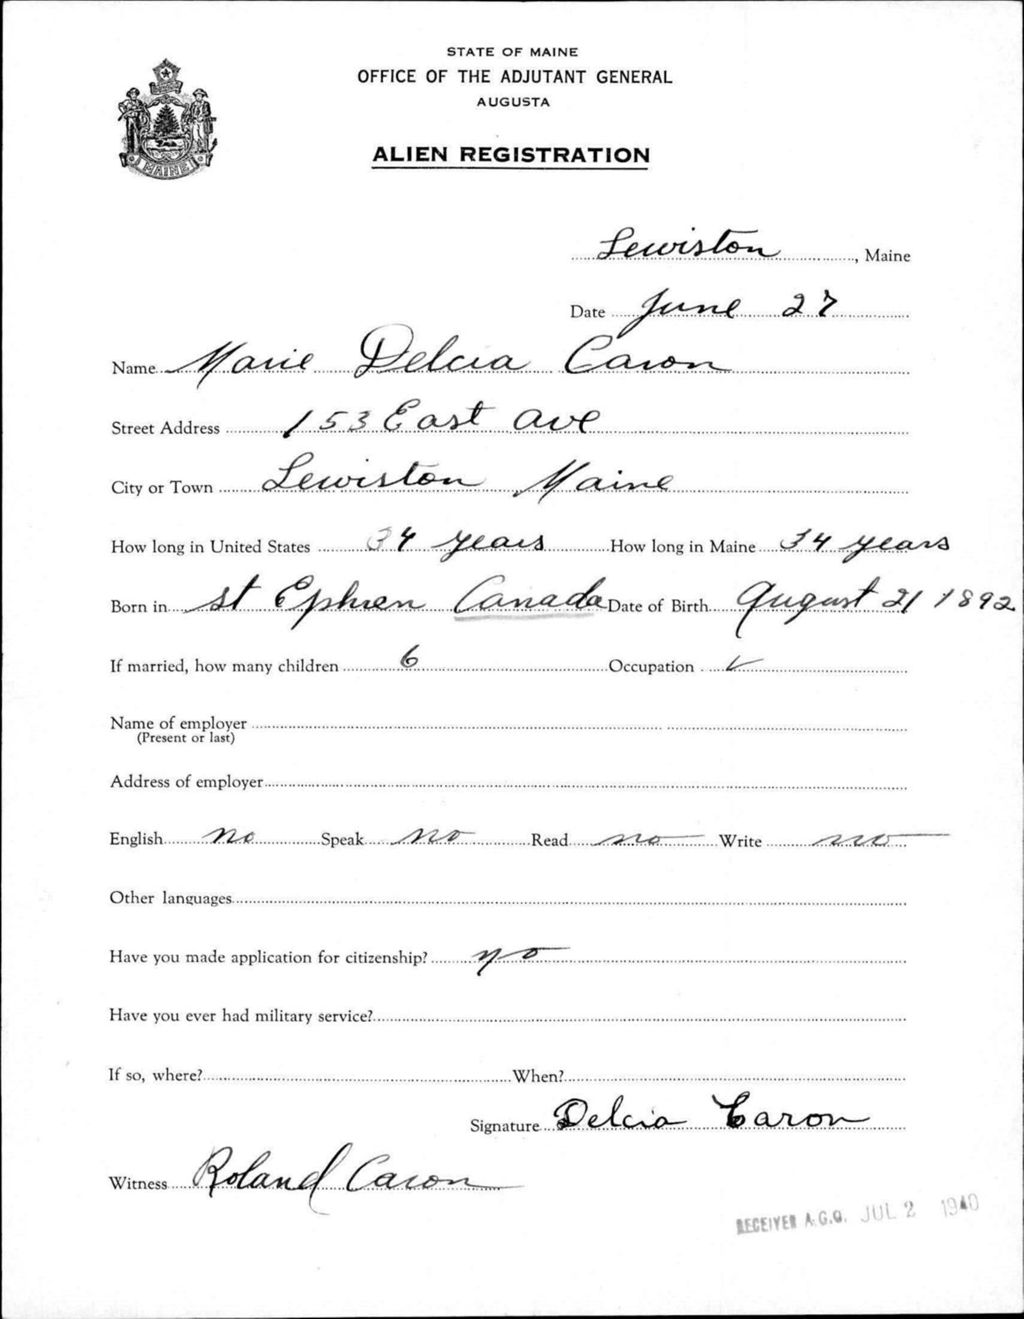 STATE OF MAINE
OFFICE OF THE ADJUTANT GENERAL
AUGUSTA
ALIEN REGISTRATION
MAINE
Lewiston, Maine
Date June 27
Name Marie Delcia Caron
Street Address 153 East Ave
City or Town Lewiston Maine
How long in United States 34 years How long in Maine 34 years
Born in St Ephren Canada Date of Birth August 21 1892
If married, how many children 6 Occupation ✓
Name of employer
(Present or last)
Address of employer
English no Speak no Read no Write no
Other languages
Have you made application for citizenship? no
Have you ever had military service?
If so, where? When?
Signature Delcia Caron
Witness Roland Caron
RECEIVED A.G.O. JUL 2 1940